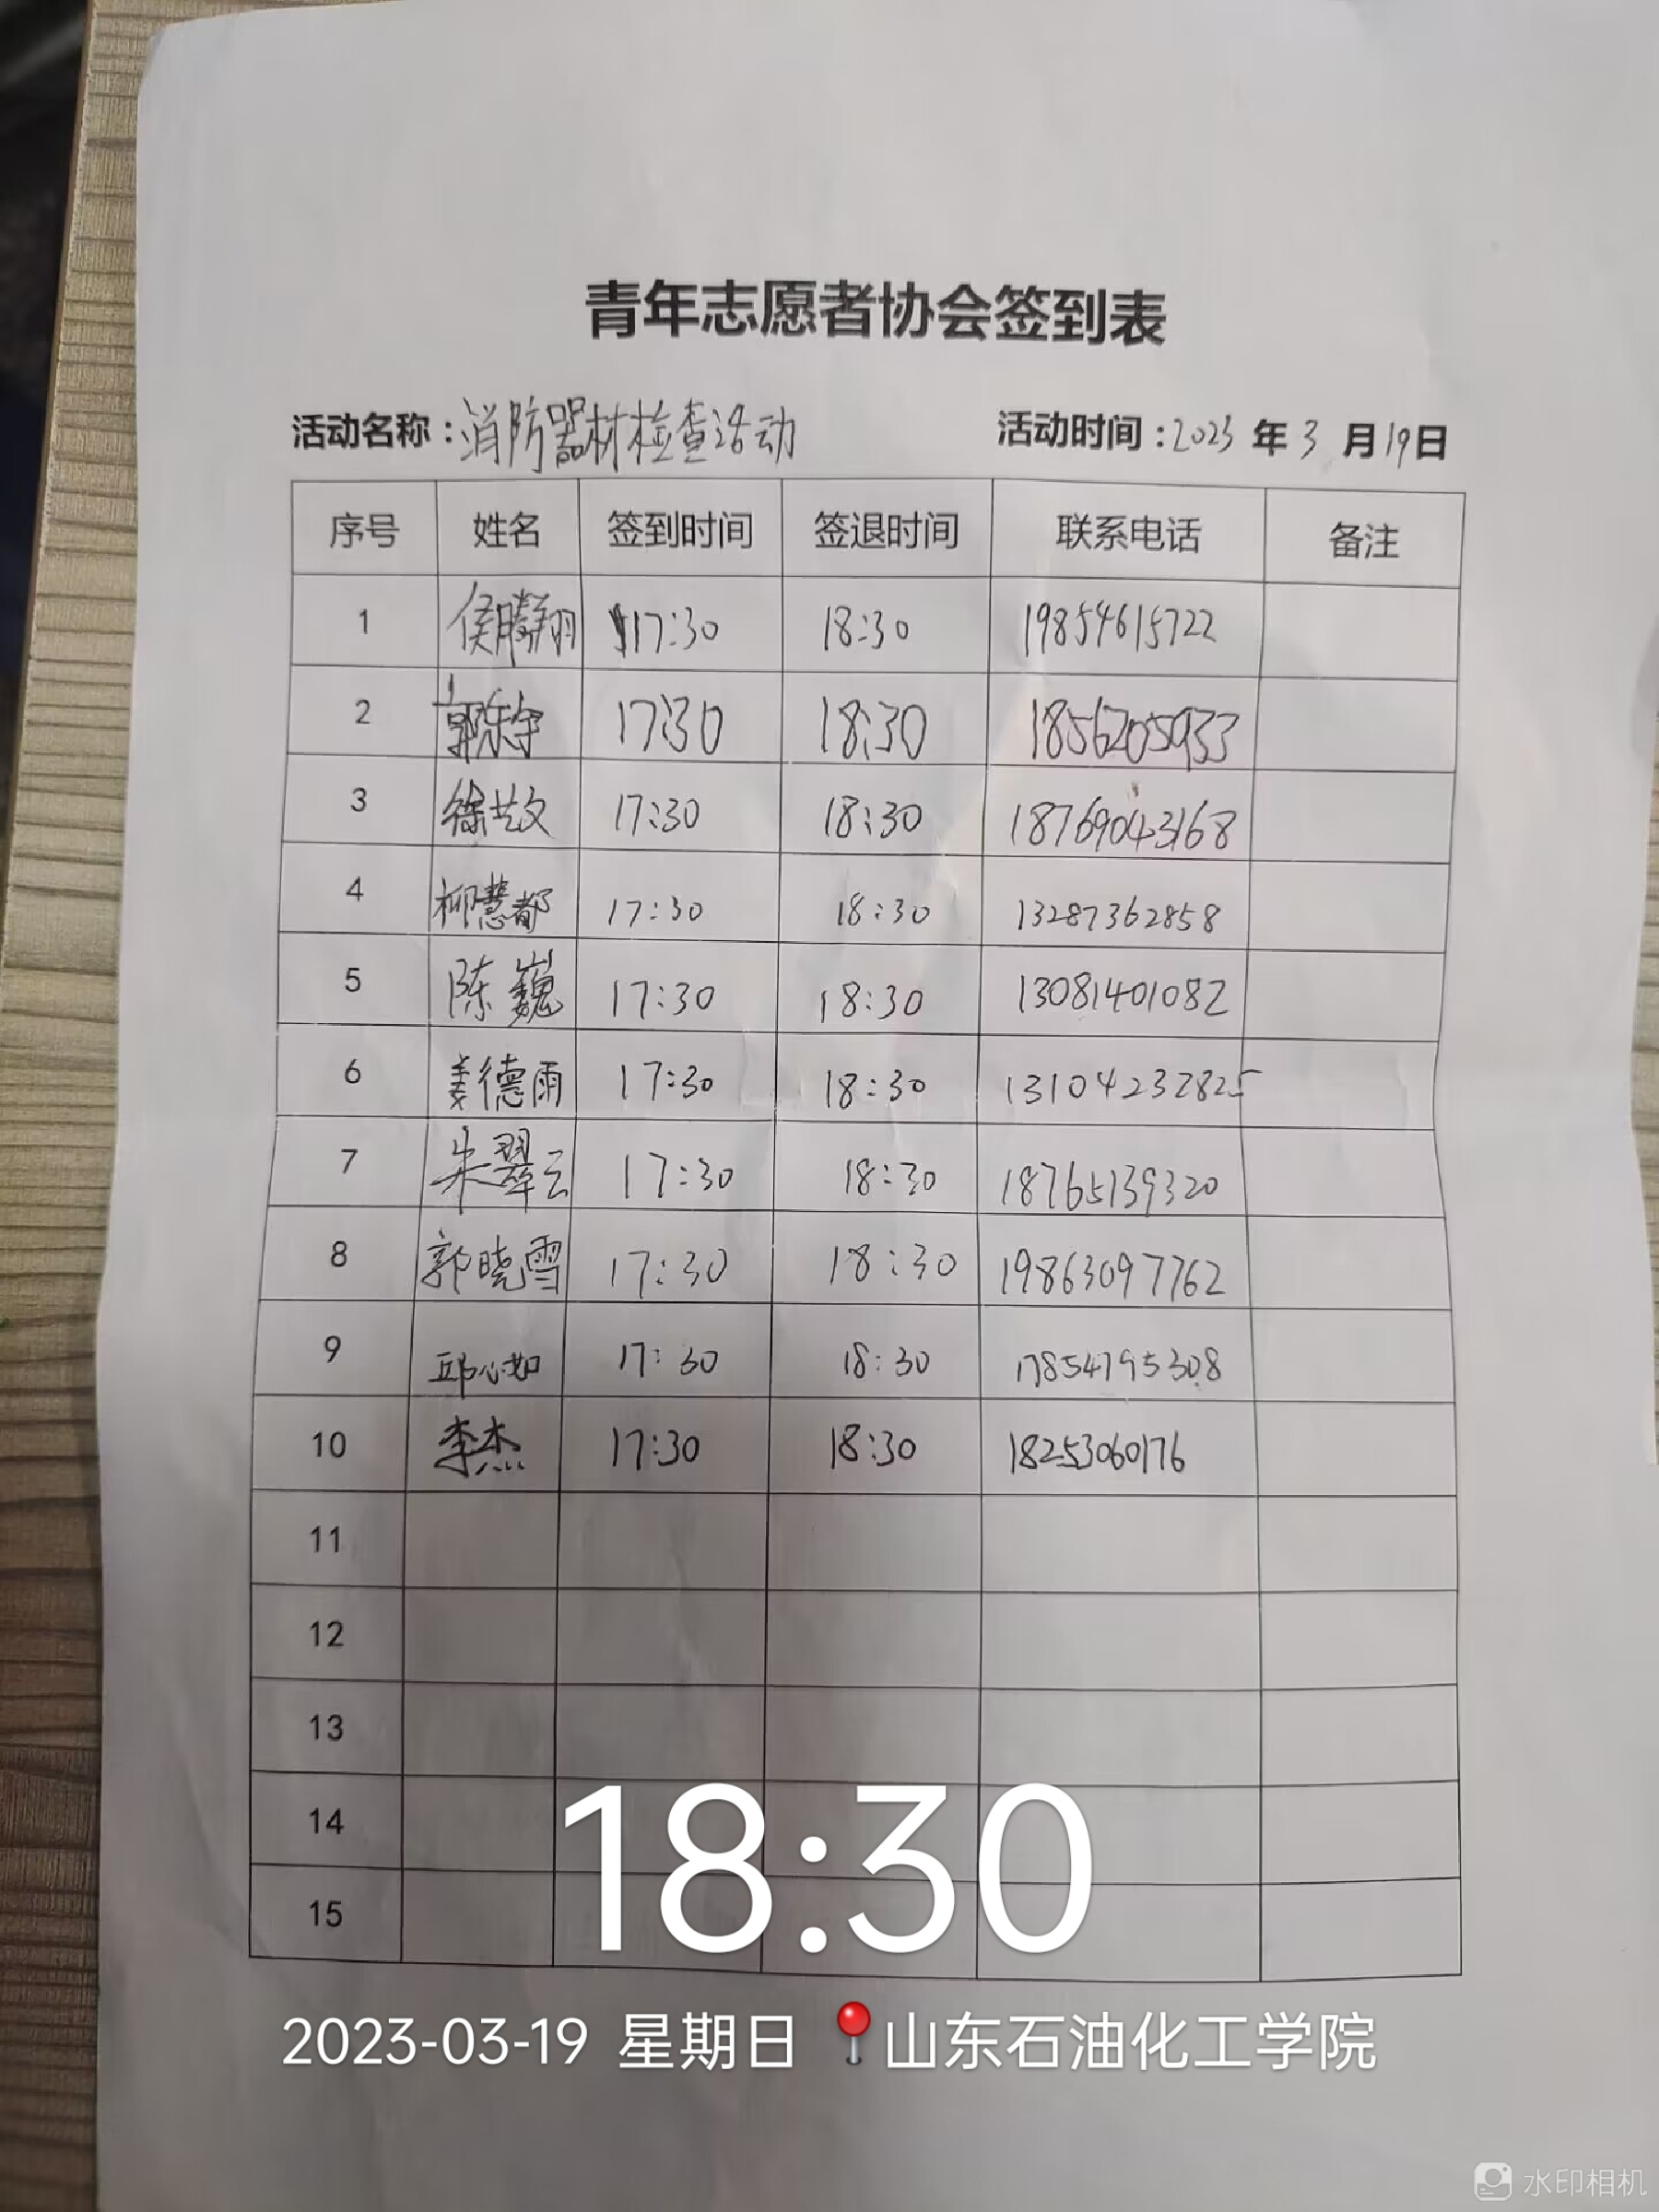 青年志愿者协会签到表
活动名称:消防器材检查活动 活动时间:2023年3月19日
序号 姓名 签到时间 签退时间 联系电话 备注
1 侯腾翔 17:30 18:30 19854615722
2 郭乐宇 17:30 18:30 1856205933
3 徐艺文 17:30 18:30 18769043168
4 柳慧都 17:30 18:30 13287362858
5 陈巍 17:30 18:30 13081401082
6 姜德雨 17:30 18:30 13104232825
7 朱翠云 17:30 18:30 18765139320
8 郭晓雪 17:30 18:30 19863097762
9 邱心如 17:30 18:30 17854195308
10 李杰 17:30 18:30 18253060176
11
12
13
14
15
18:30
2023-03-19 星期日 山东石油化工学院
水印相机